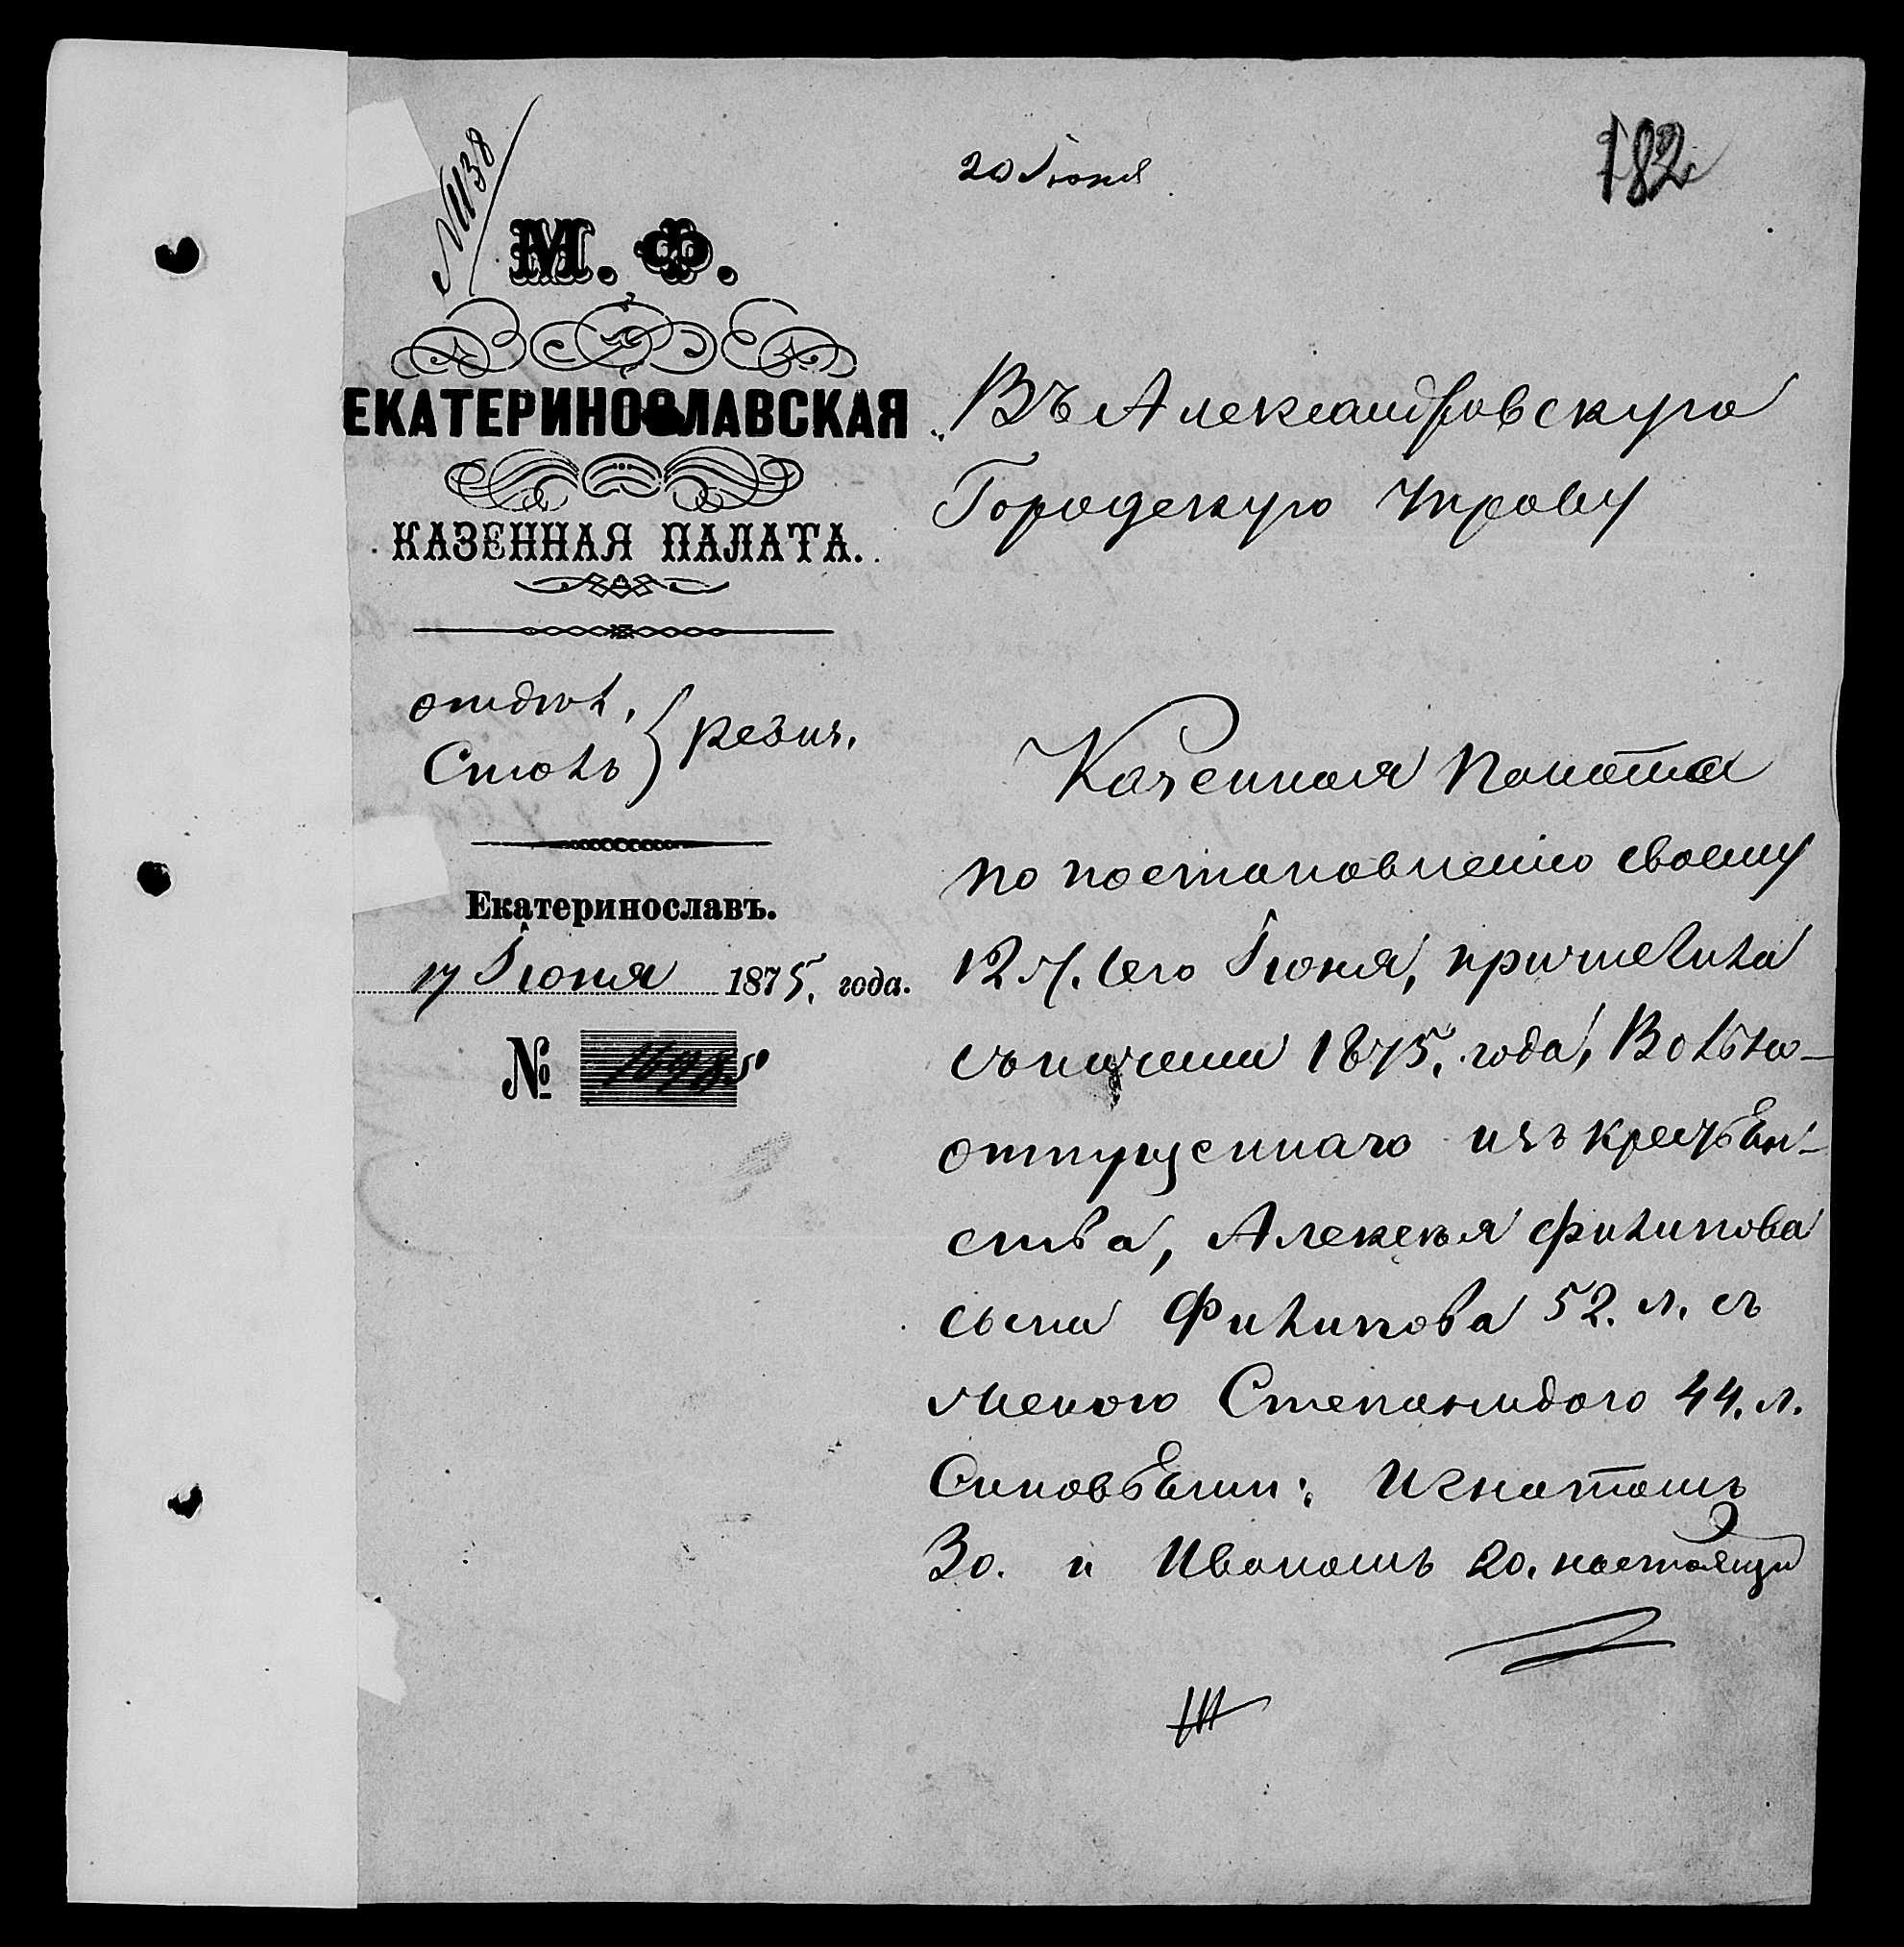 № 1138
20 Іюня
182
М. Ф.
ЕКАТЕРИНОСЛАВСКАЯ
КАЗЕННАЯ ПАЛАТА.
отдѣл.
Столъ } ревиз.
Екатеринославъ.
17 Іюня 1875. года.
№
Въ Александровскую
Городскую Управу
Казенная Палата
по постановленію своему
12 ч. сего Іюня, причислила
съ 1875. года, Вольно-
отпущеннаго изъ крестьян-
ства, Алексѣя Филипова
сына Филипова 52. л. съ
женою Степанидою 44. л.
Сыновьями: Игнатомъ
30. и Иваномъ 20. настоящи